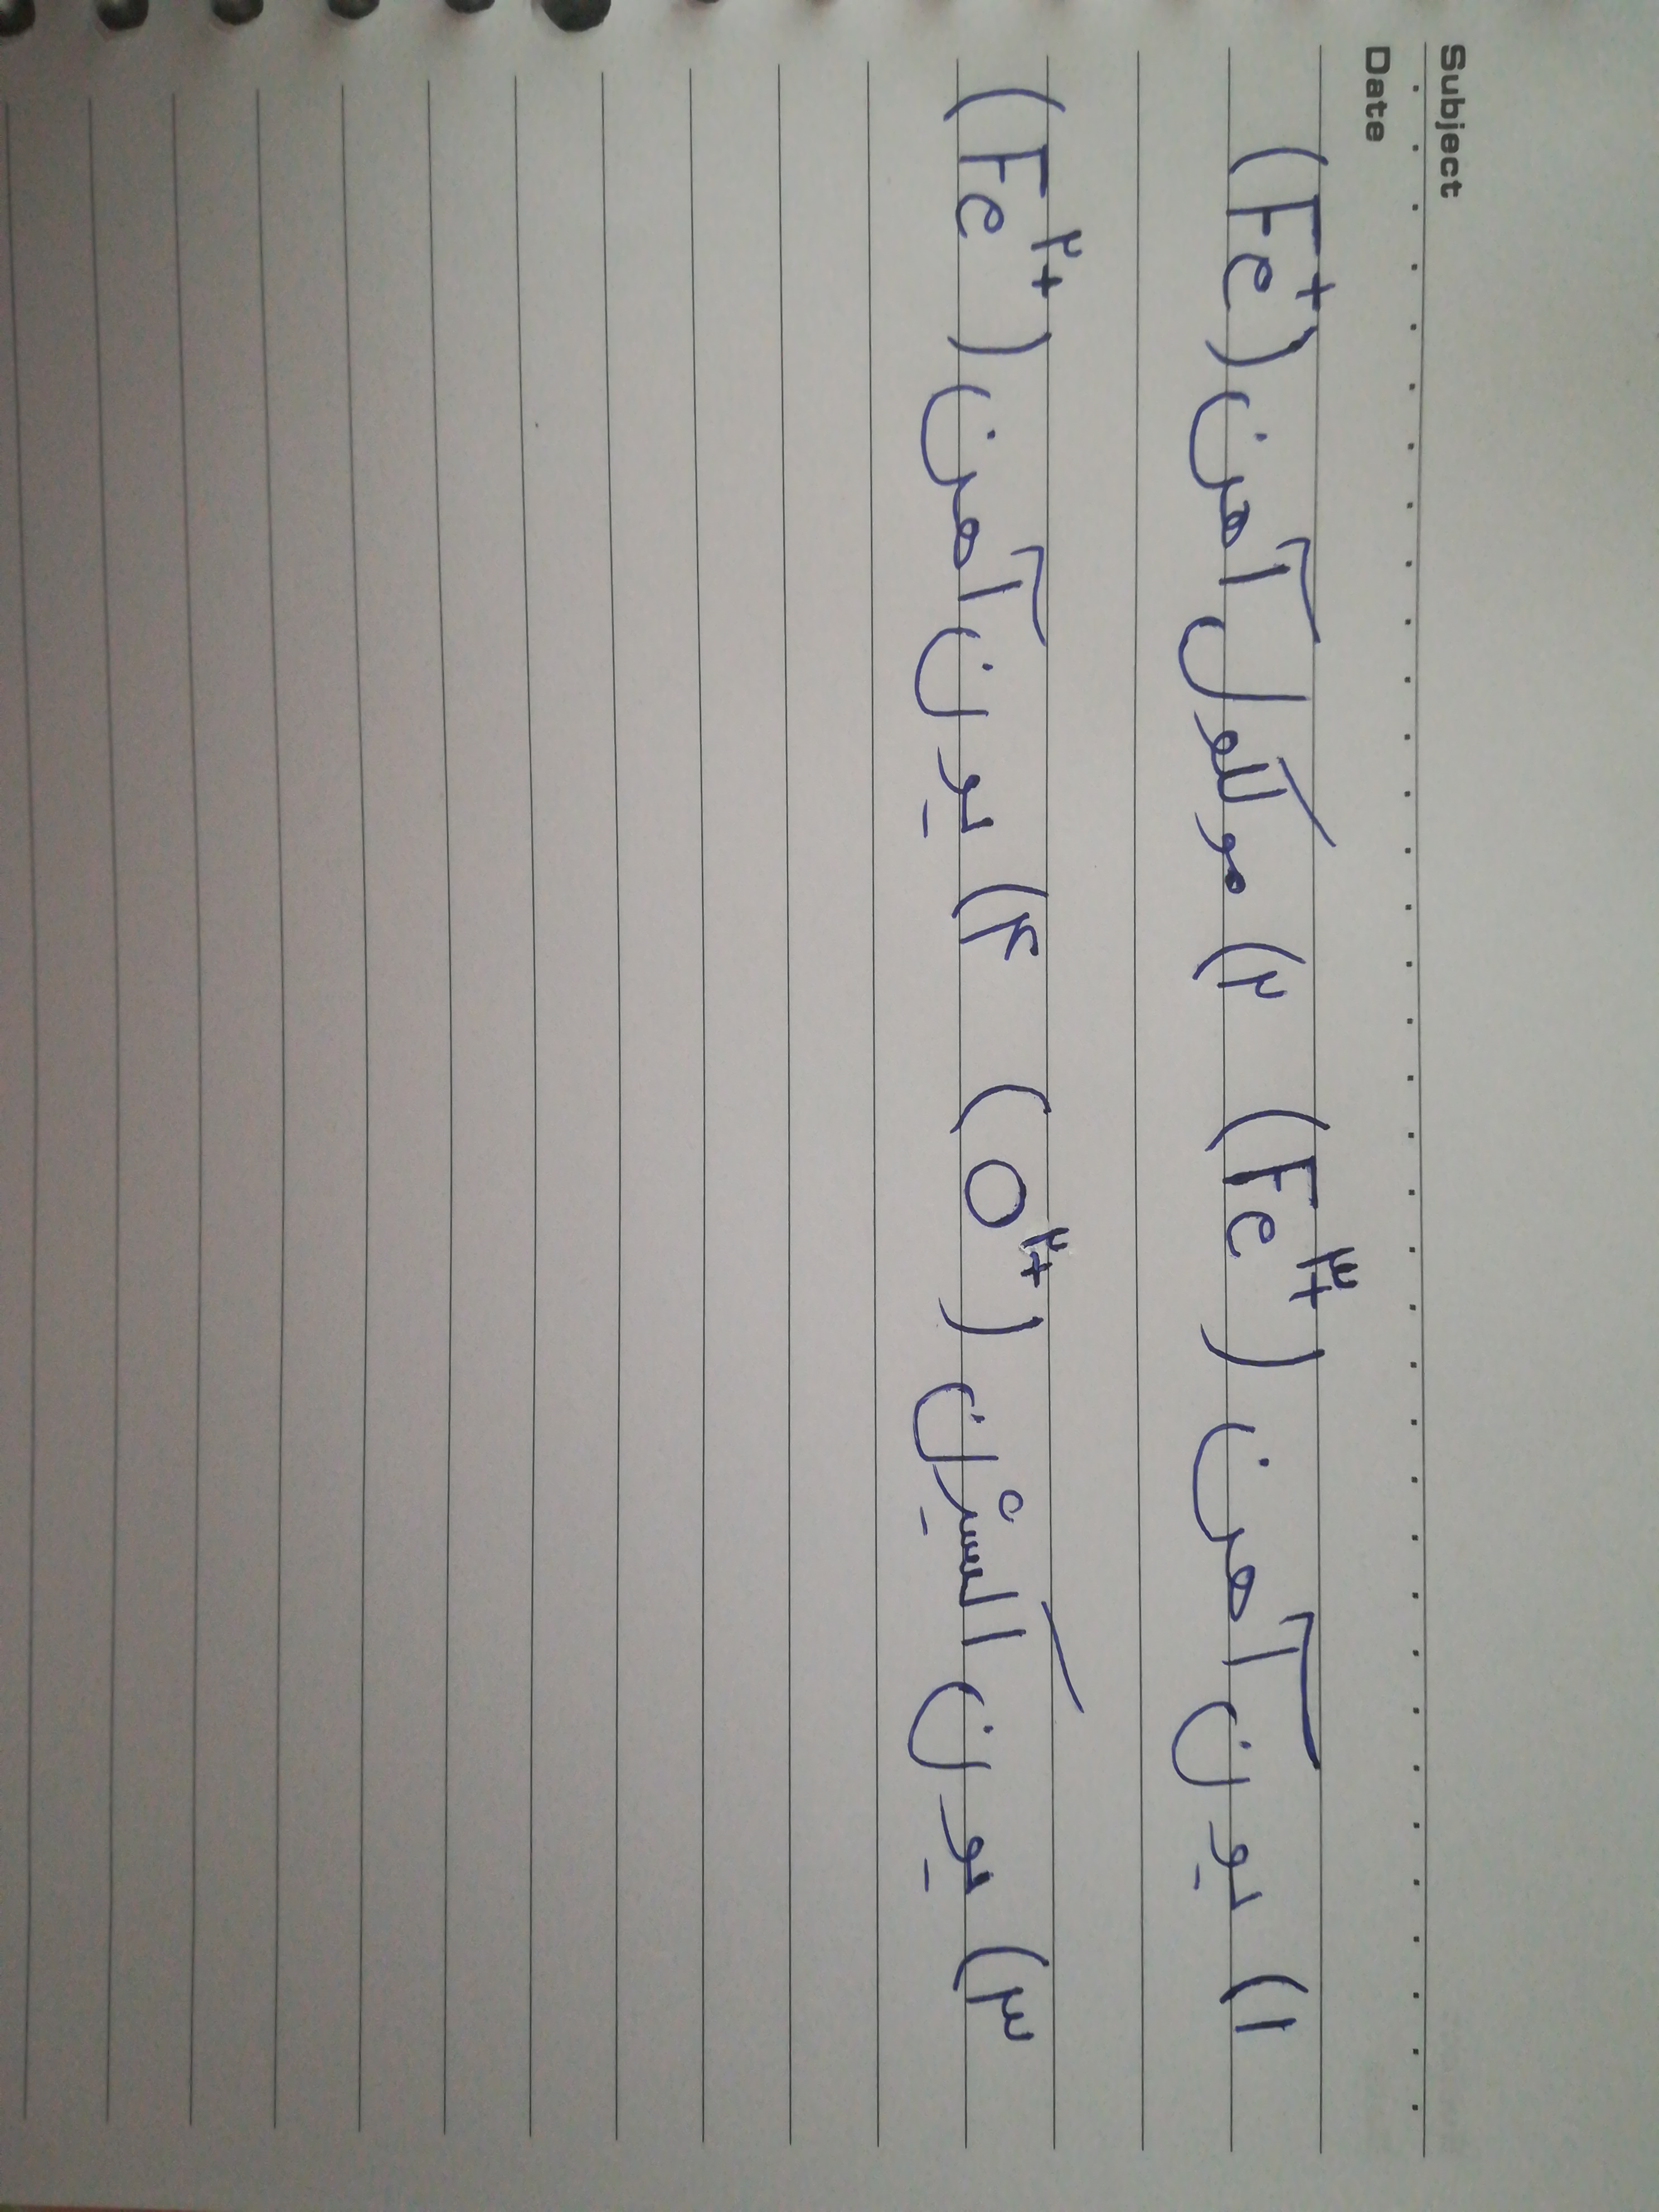 Subject
Date
۱) یون آهن (Fe³⁺) ۲) مولکول آهن (Fe⁺)
۳) یون اکسیژن (O²⁺) ۴) یون آهن (Fe²⁺)